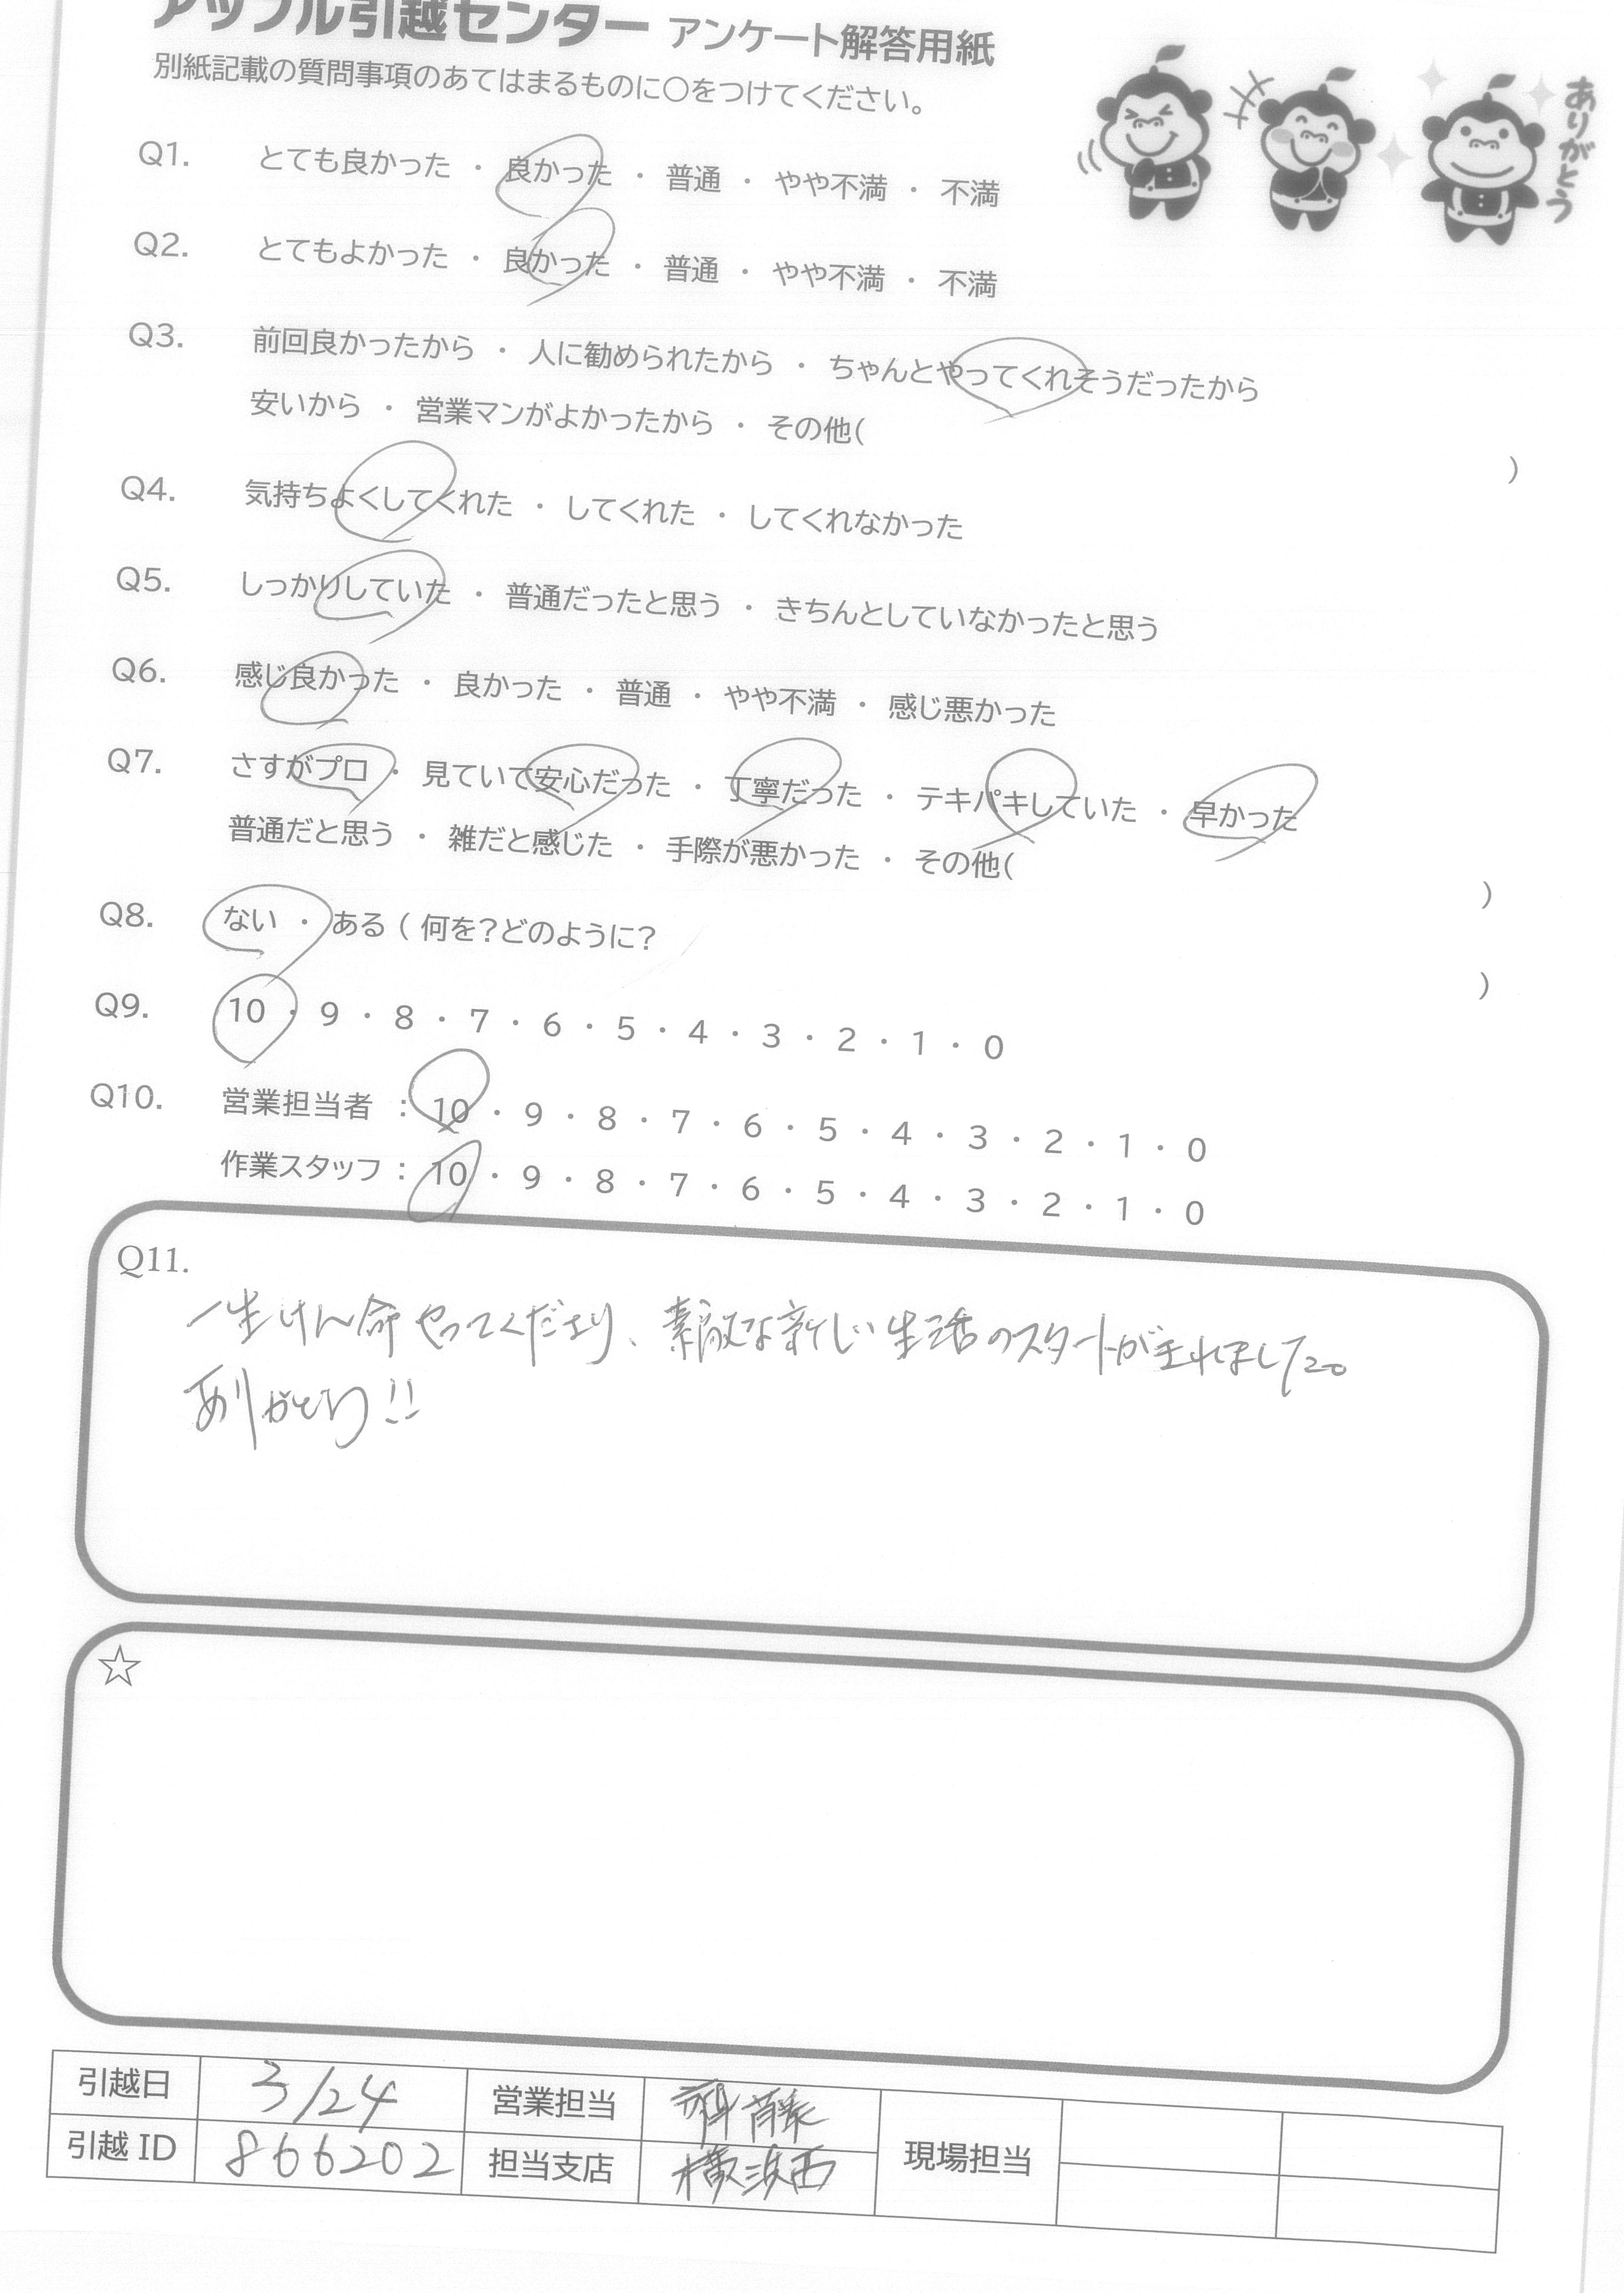 アップル引越センター アンケート解答用紙
別紙記載の質問事項のあてはまるものに〇をつけてください。
ありがとう
Q1. とても良かった ・ 良かった ・ 普通 ・ やや不満 ・ 不満
Q2. とてもよかった ・ 良かった ・ 普通 ・ やや不満 ・ 不満
Q3. 前回良かったから ・ 人に勧められたから ・ ちゃんとやってくれそうだったから
安いから ・ 営業マンがよかったから ・ その他( )
Q4. 気持ちよくしてくれた ・ してくれた ・ してくれなかった
Q5. しっかりしていた ・ 普通だったと思う ・ きちんとしていなかったと思う
Q6. 感じ良かった ・ 良かった ・ 普通 ・ やや不満 ・ 感じ悪かった
Q7. さすがプロ ・ 見ていて安心だった ・ 丁寧だった ・ テキパキしていた ・ 早かった
普通だと思う ・ 雑だと感じた ・ 手際が悪かった ・ その他( )
Q8. ない ・ ある ( 何を?どのように? )
Q9. 10 ・ 9 ・ 8 ・ 7 ・ 6 ・ 5 ・ 4 ・ 3 ・ 2 ・ 1 ・ 0
Q10. 営業担当者 : 10 ・ 9 ・ 8 ・ 7 ・ 6 ・ 5 ・ 4 ・ 3 ・ 2 ・ 1 ・ 0
作業スタッフ : 10 ・ 9 ・ 8 ・ 7 ・ 6 ・ 5 ・ 4 ・ 3 ・ 2 ・ 1 ・ 0
Q11.
一生けん命やってくださり、素敵な新しい生活のスタートがきれました。
ありがとう!!
☆
引越日 3/24 営業担当 現場担当
引越 ID 866202 担当支店 横浜西